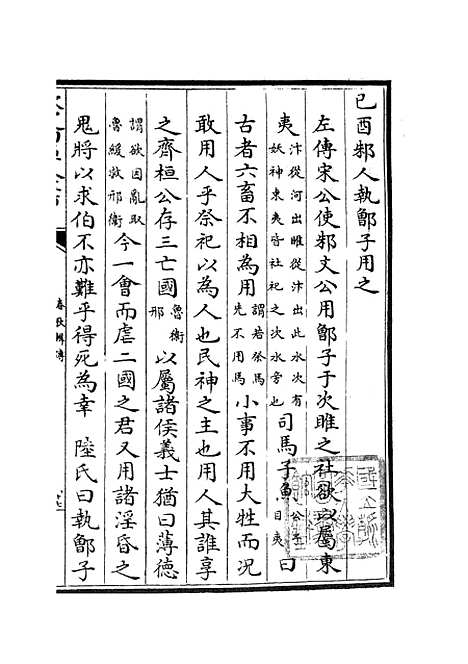 己酉邾人執鄫子用之
左傳宋公使邾文公用鄫子于次睢之社欲以屬東
夷汴從河出睢從汴出此水次有妖神東夷皆社祀之次水旁也司馬子魚公子目夷曰
古者六畜不相為用謂若祭馬先不用馬小事不用大牲而况
敢用人乎祭祀以為人也民神之主也用人其誰享
之齊桓公存三亡國魯衛邢以屬諸侯義士猶曰薄德
謂欲因亂取魯緩救邢衛今一會而虐二國之君又用諸淫昏之
鬼將以求伯不亦難乎得死為幸 陸氏曰執鄫子
春秋輯傳